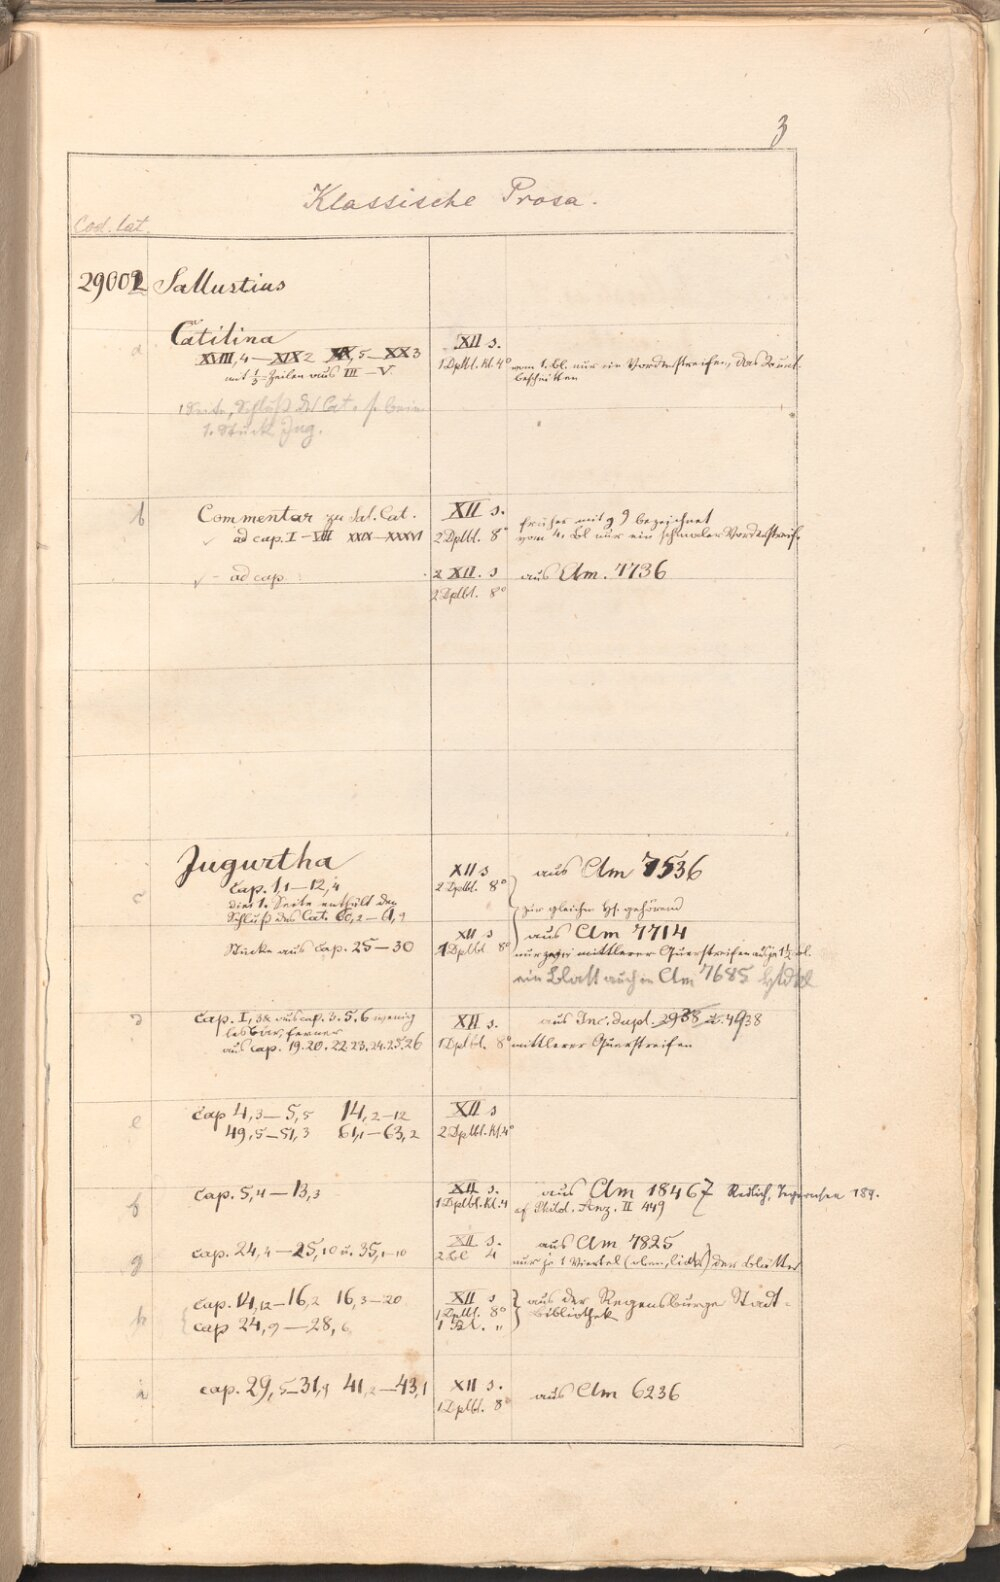 3
Klassische Prosa.
Cod. lat.
29002 Sallustius
a Catilina XII s.
XVIII, 4 — XIX 2 XIX, 5 — XX 3 1 Dplbl. kl. 4° vom 1. Bl. nur ein Vorderstreifen, das 2. unt.
mit 1/3 Zeilen aus III — V beschnitten
1 Seite, Schluß des Cat. s. beim
1. Stück Jug.
b Commentar zu Sal. Cat. XII s. früher mit g) bezeichnet
ad cap. I – VIII XXIX — XXXVI 2 Dplbl. 8° vom 4. Bl nur ein schmaler Vorderstreif.
– ad cap. XII. s aus Clm. 7736
2 Dplbl. 8°
Jugurtha XII s aus Clm 7536
c cap. 1,1 — 12,4 2 Dplbl. 8°
die 1. Seite enthält den zur gleichen Hs. gehörend
Schluß des Cat. 60,2 — 61,9
XII s aus Clm 7714
Stücke aus cap. 25 — 30 1 Dplbl 8° nur mittlerer Querstreifen
ein Blatt auch in Clm 7685
d cap. I, aus cap. 3. 5. 6 wenig XII s. aus Inc. dupl. 2938 4938
lesbar, ferner
aus cap. 19. 20. 22 23. 24. 25. 26 1 Dplbl. 8° mittlerer Querstreifen
e cap 4,3 — 5,5 14,2–12 XII s
49,5 — 51,3 61,1 — 63,2 2 Dplbl. kl. 4°
f cap. 5,4 — 13,3 XII s. aus Clm 18467 Redlich, Tegernsee 189.
1 Dplbl. kl. 4 cf Philol. Anz. II 449
g cap. 24,4 — 25,10 u. 35,1–10 XII s. aus Clm 7825
2 Bl 4 nur je 1 Viertel (oben, links) der Blätter
h cap. 14,12 — 16,2 16,3 — 20 XII s aus der Regensburger Stadt-
1 Dplbl. 8° bibliothek
cap 24,9 — 28,6 1 Bl. „
i cap. 29,5 — 31,9 41,2 — 43,1 XII s. aus Clm 6236
1 Dplbl. 8°